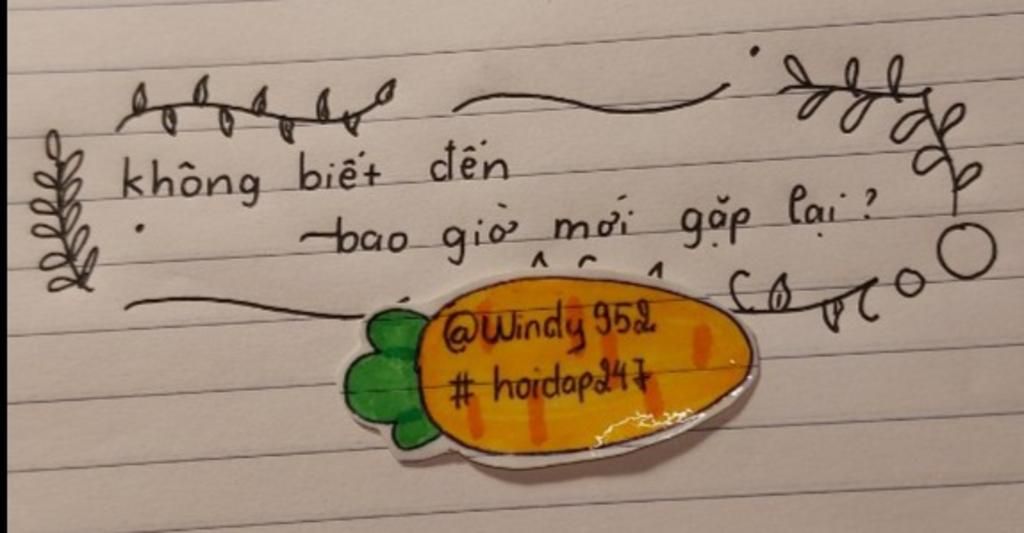 không biết đến
bao giờ mới gặp lại?
@Windy952
# hoidap247